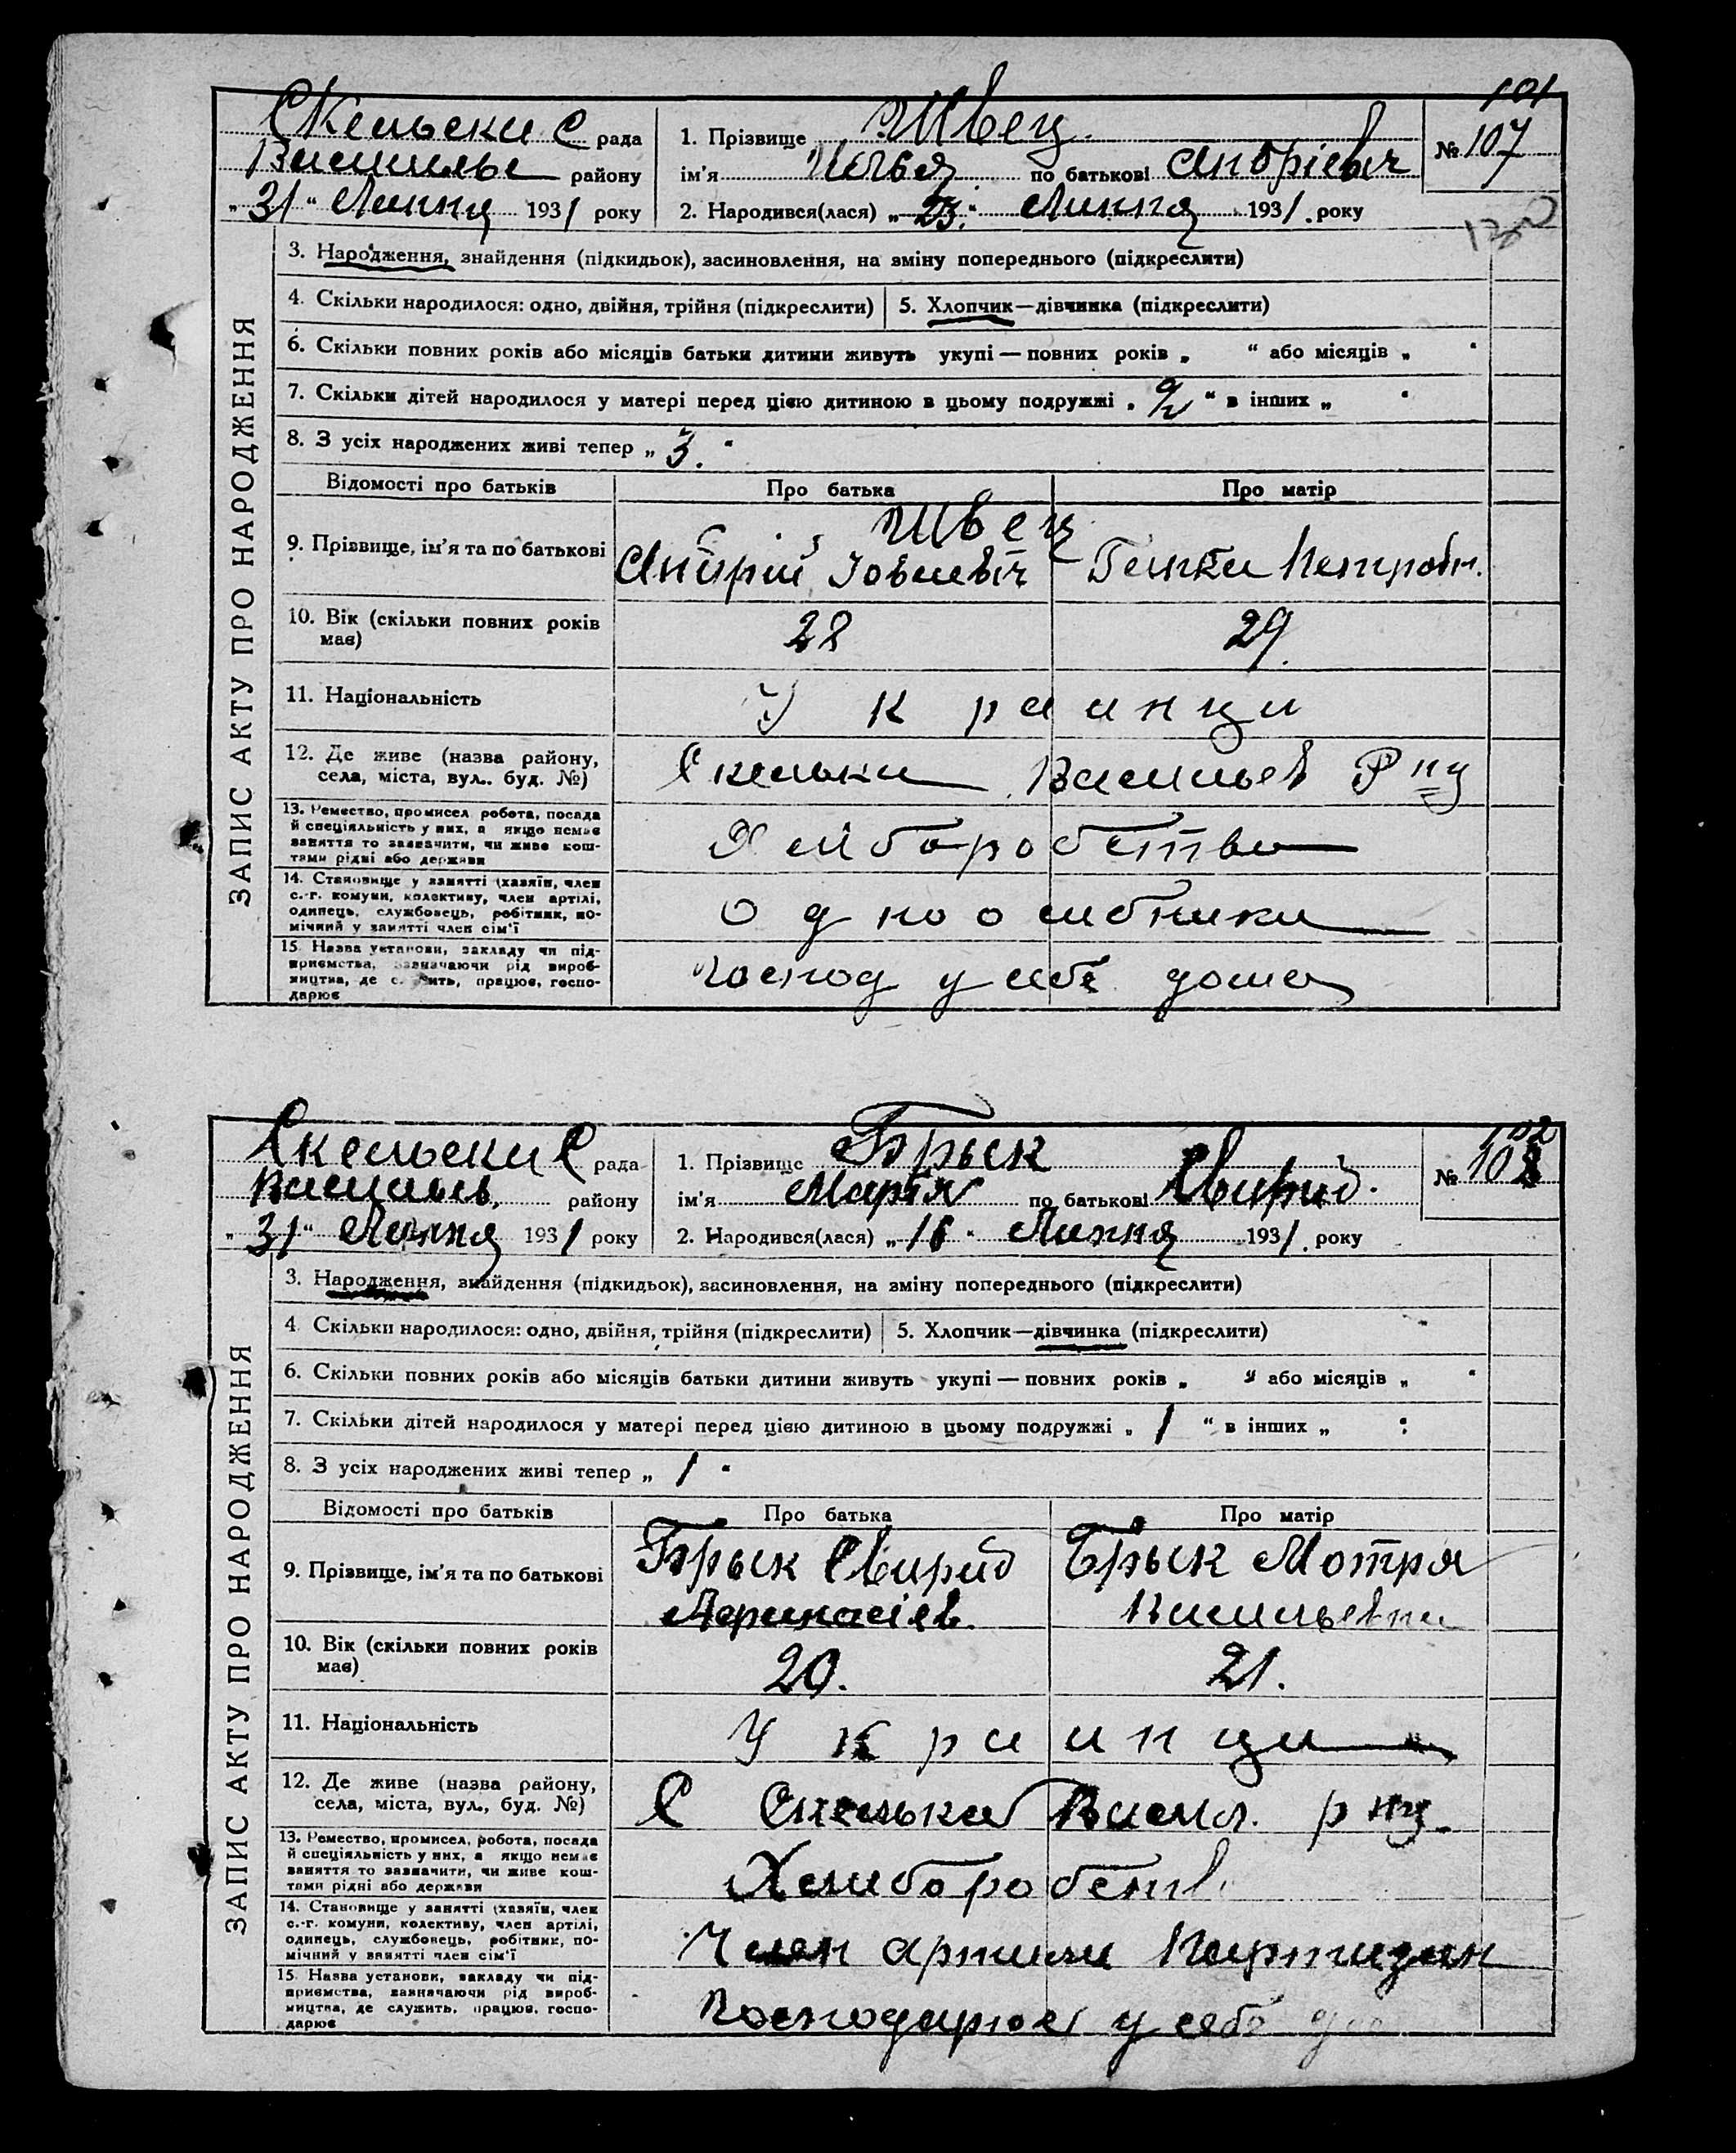 101
Скельски С рада
1. Прізвище Швец
№ 107
Василье району
ім'я Илья по батькові Андріевіч
„31“ Липня 1931 року
2. Народився(лася) „23“ Липня 1931. року
ЗАПИС АКТУ ПРО НАРОДЖЕННЯ
3. Народження, знайдення (підкидьок), засиновлення, на зміну попереднього (підкреслити)
4. Скільки народилося: одно, двійня, трійня (підкреслити)
5. Хлопчик—дівчинка (підкреслити)
6. Скільки повних років або місяців батьки дитини живуть укупі — повних років „ “ або місяців „ “
7. Скільки дітей народилося у матері перед цією дитиною в цьому подружжі „ “ в інших „ “
8. З усіх народжених живі тепер „ 3. “
Відомості про батьків
Про батька
Про матір
Швец
9. Прізвище, ім'я та по батькові
Андрій Іовлевіч
Ганна Петровн.
10. Вік (скільки повних років має)
28
29
11. Національність
Украинци
12. Де живе (назва району, села, міста, вул.. буд. №)
Скельки Васильев Р ну
13. Ремество, промисел робота, посада й спеціяльність у них, а якщо немає заняття то зазначити, чи живе коштами рідні або держави
Хлиборобство
14. Становище у занятті (хазяїн, член с.-г. комуни, колективу, член артілі, одинець, службовець, робітник, помічний у занятті член сім'ї
одноосибники
15. Назва установи, закладу чи підприємства, зазначаючи рід виробництва, де служить, працює, господарює
Господ у себе дома
102
Скельски С рада
1. Прізвище Брык
№ 108
Васильев. району
ім'я Марія по батькові Свирид.
„31“ Липня 1931 року
2. Народився(лася) „16“ Липня 1931. року
ЗАПИС АКТУ ПРО НАРОДЖЕННЯ
3. Народження, знайдення (підкидьок), засиновлення, на зміну попереднього (підкреслити)
4. Скільки народилося: одно, двійня, трійня (підкреслити)
5. Хлопчик—дівчинка (підкреслити)
6. Скільки повних років або місяців батьки дитини живуть укупі — повних років „ “ або місяців „ “
7. Скільки дітей народилося у матері перед цією дитиною в цьому подружжі „ 1 “ в інших „ “
8. З усіх народжених живі тепер „ 1 “
Відомості про батьків
Про батька
Про матір
9. Прізвище, ім'я та по батькові
Брык Свирид
Афанасіев.
Брык Мотря
Васильевна
10. Вік (скільки повних років має)
20.
21.
11. Національність
Украинци
12. Де живе (назва району, села, міста, вул., буд. №)
С Скелька Васил. р ну.
13. Ремество, промисел, робота, посада й спеціяльність у них, а якщо немає заняття то зазначити, чи живе коштами рідні або держави
Хлиборобств
14. Становище у занятті (хазяїн, член с.-г. комуни, колективу, член артілі, одинець, службовець, робітник, помічний у занятті член сім'ї
Член артили Партизан
15. Назва установи, закладу чи підприємства, зазначаючи рід виробництва, де служить, працює, господарює
Господарюе у себе